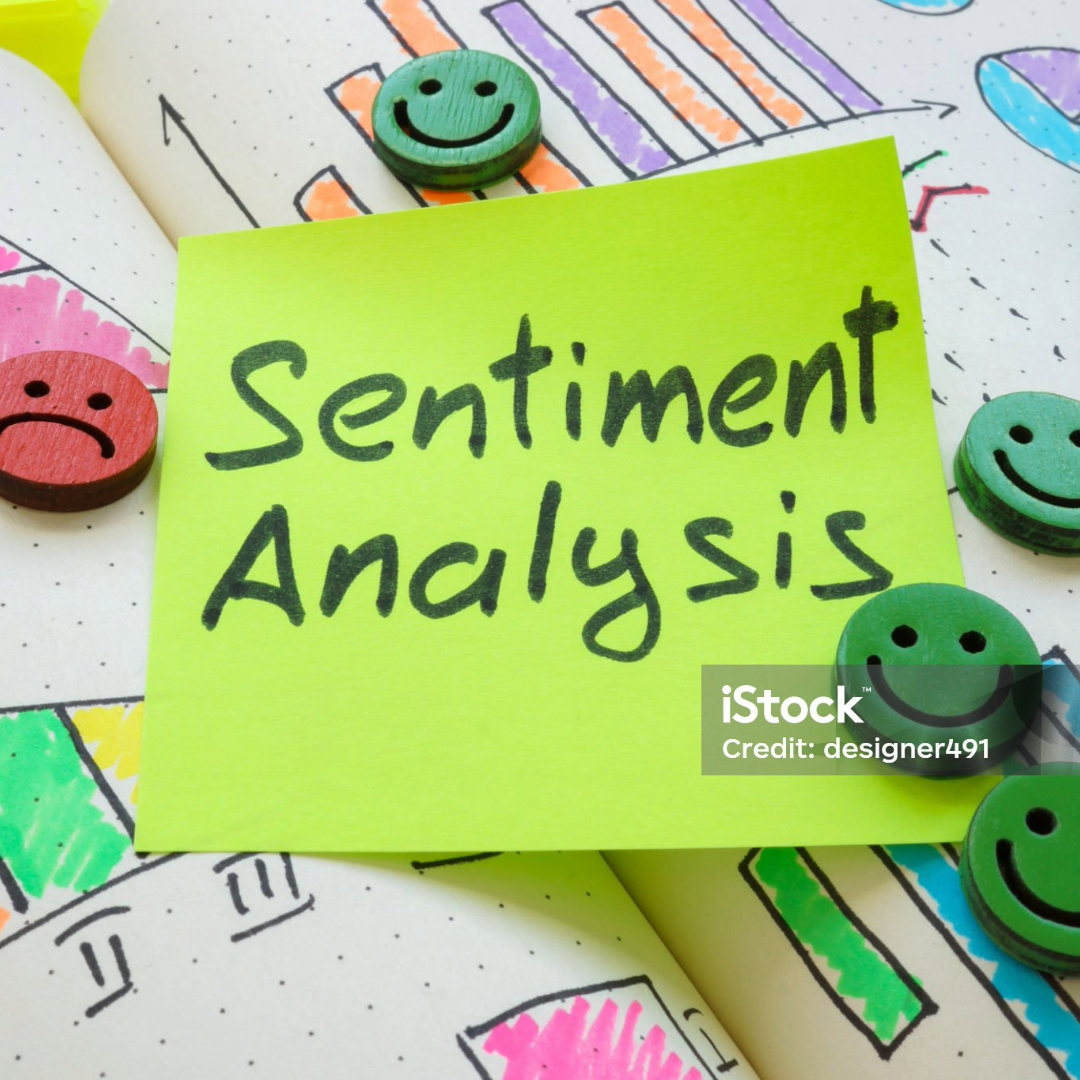 Sentiment
Analysis
iStock™
Credit: designer491
III
II